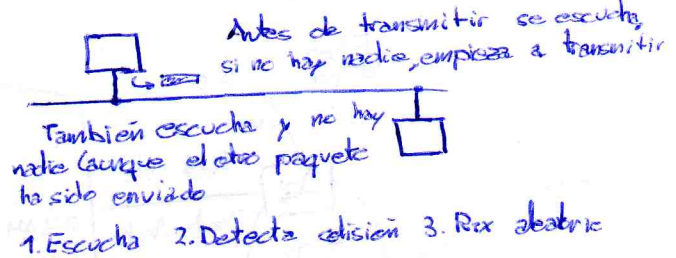 Antes de transmitir se escucha,
si no hay nadie, empieza a transmitir
También escucha y no hay
nadie (aunque el otro paquete
ha sido enviado
1. Escucha 2. Detecta colisión 3. Rtx aleatorio